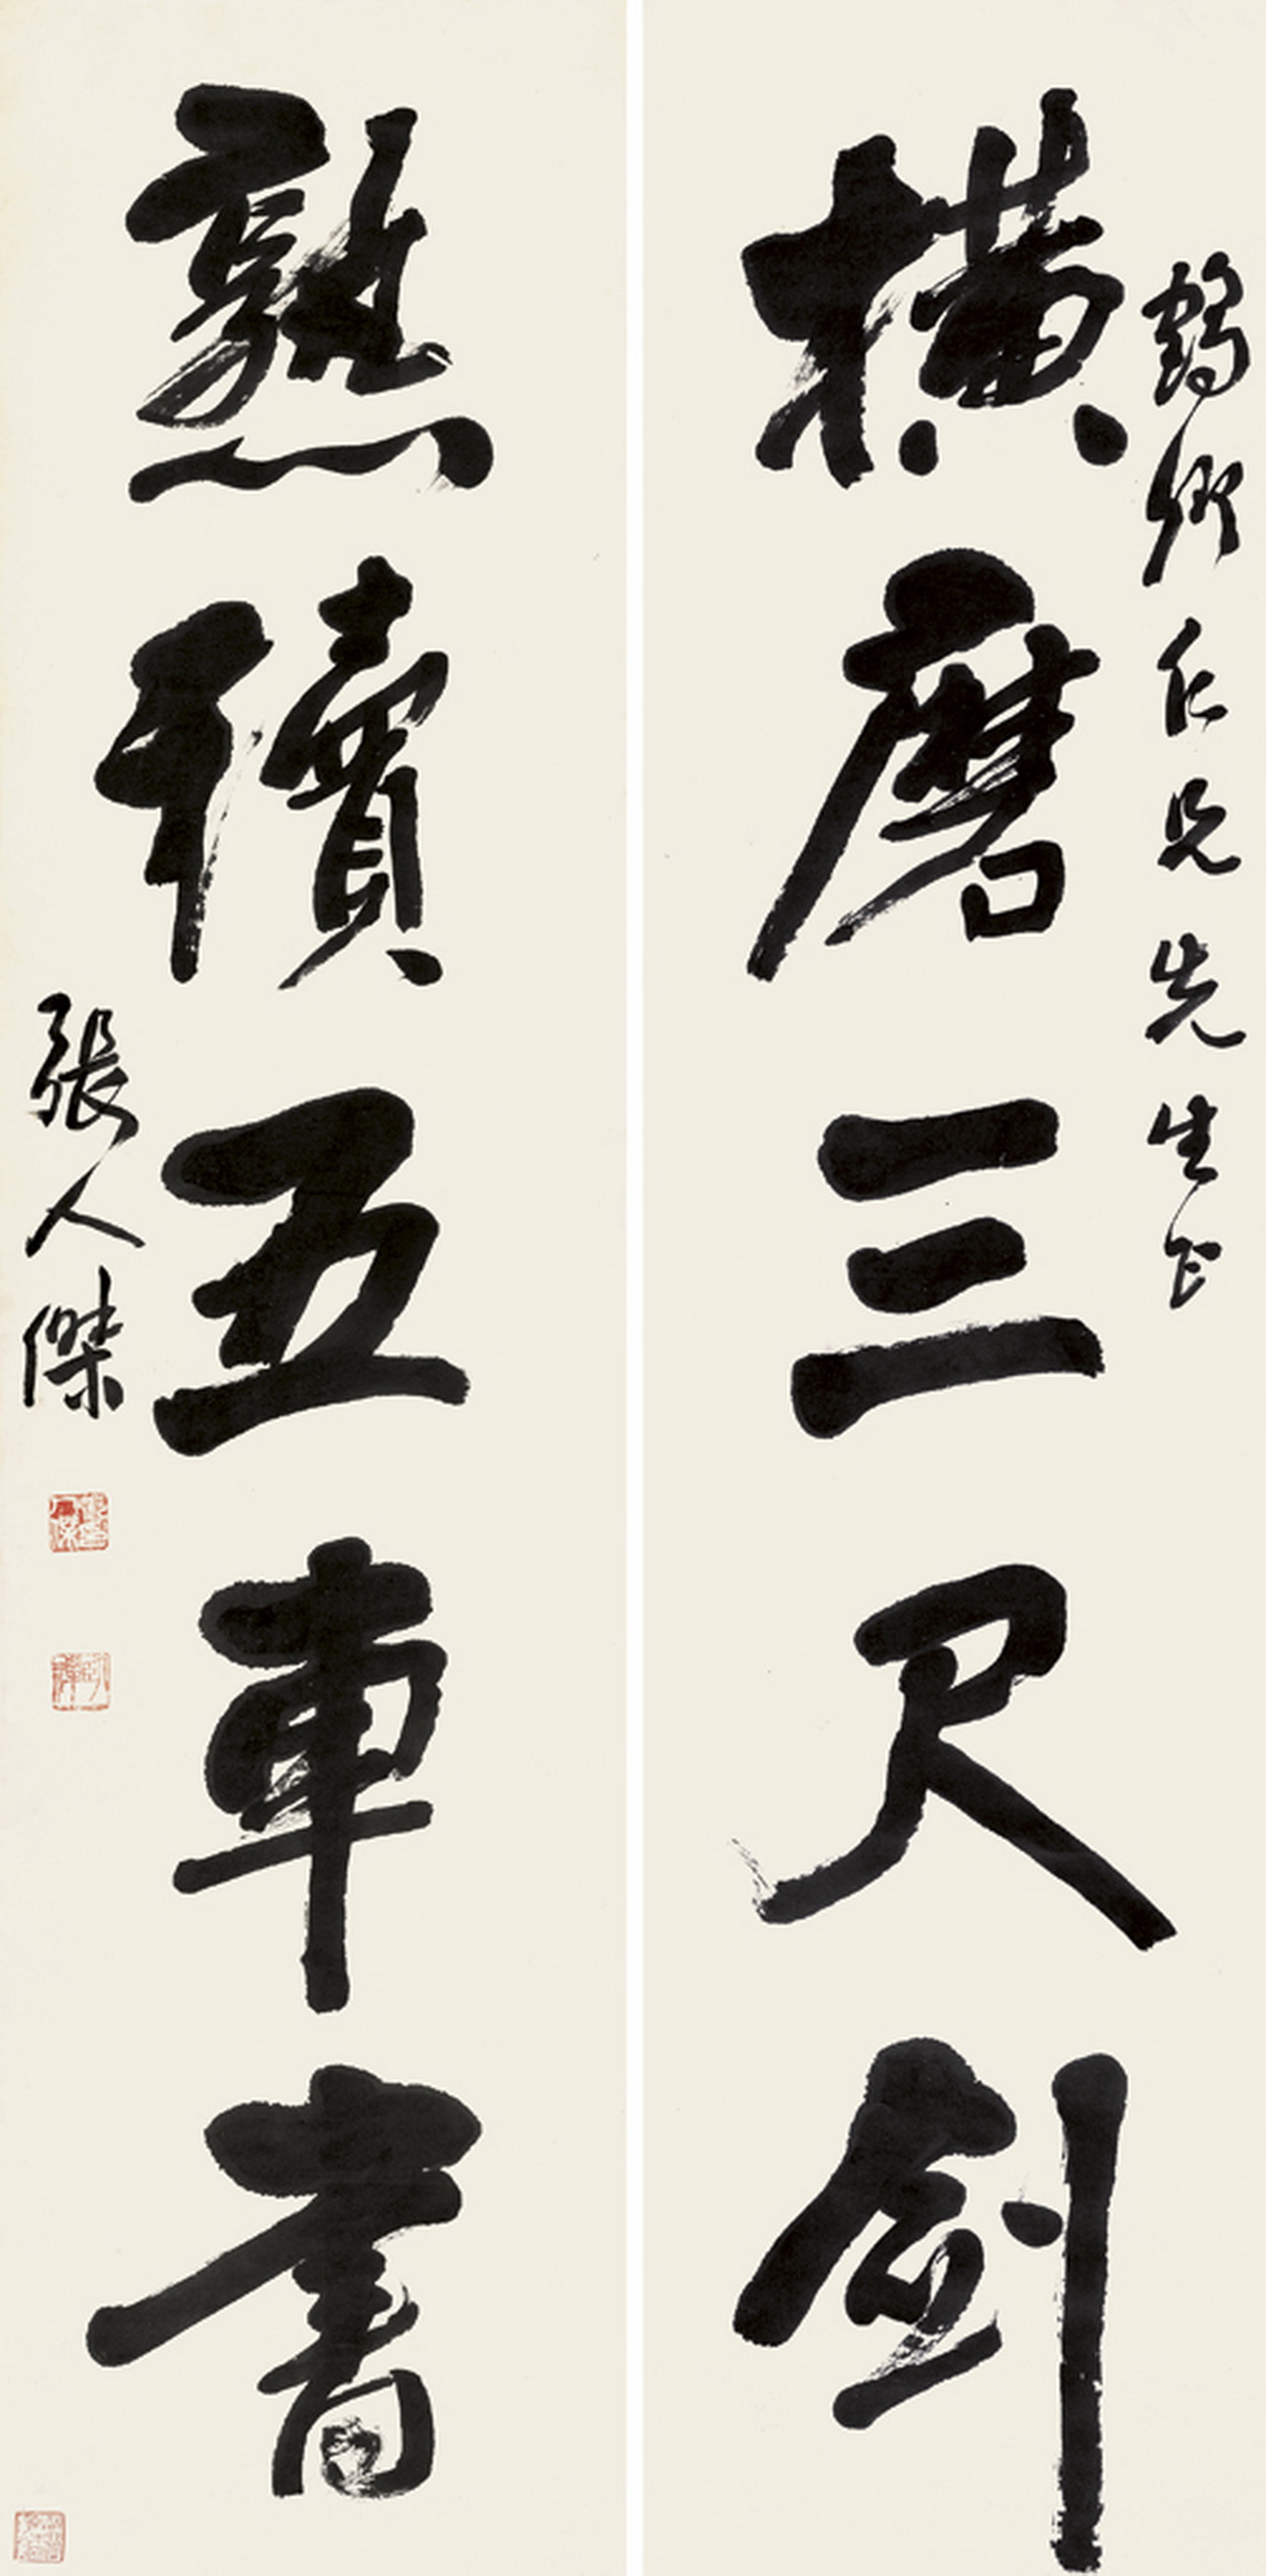 鶴卿仁兄先生正
橫磨三尺劍
熟讀五車書
張人傑